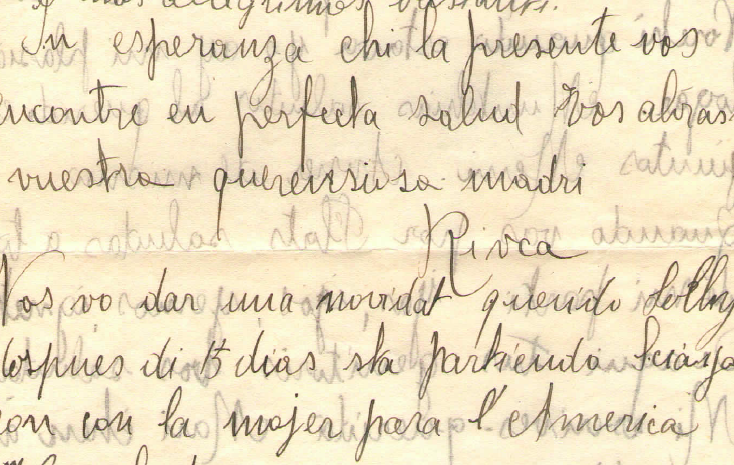 nos allegrimos bastanti.
In esperanza chi la presente vos
encontre en perfecta salud vos abras
vuestra querensiosa madri
Rivca
Vos vo dar una novidat querido
despues di 15 dias sta partiendo
con la mojer para l'America